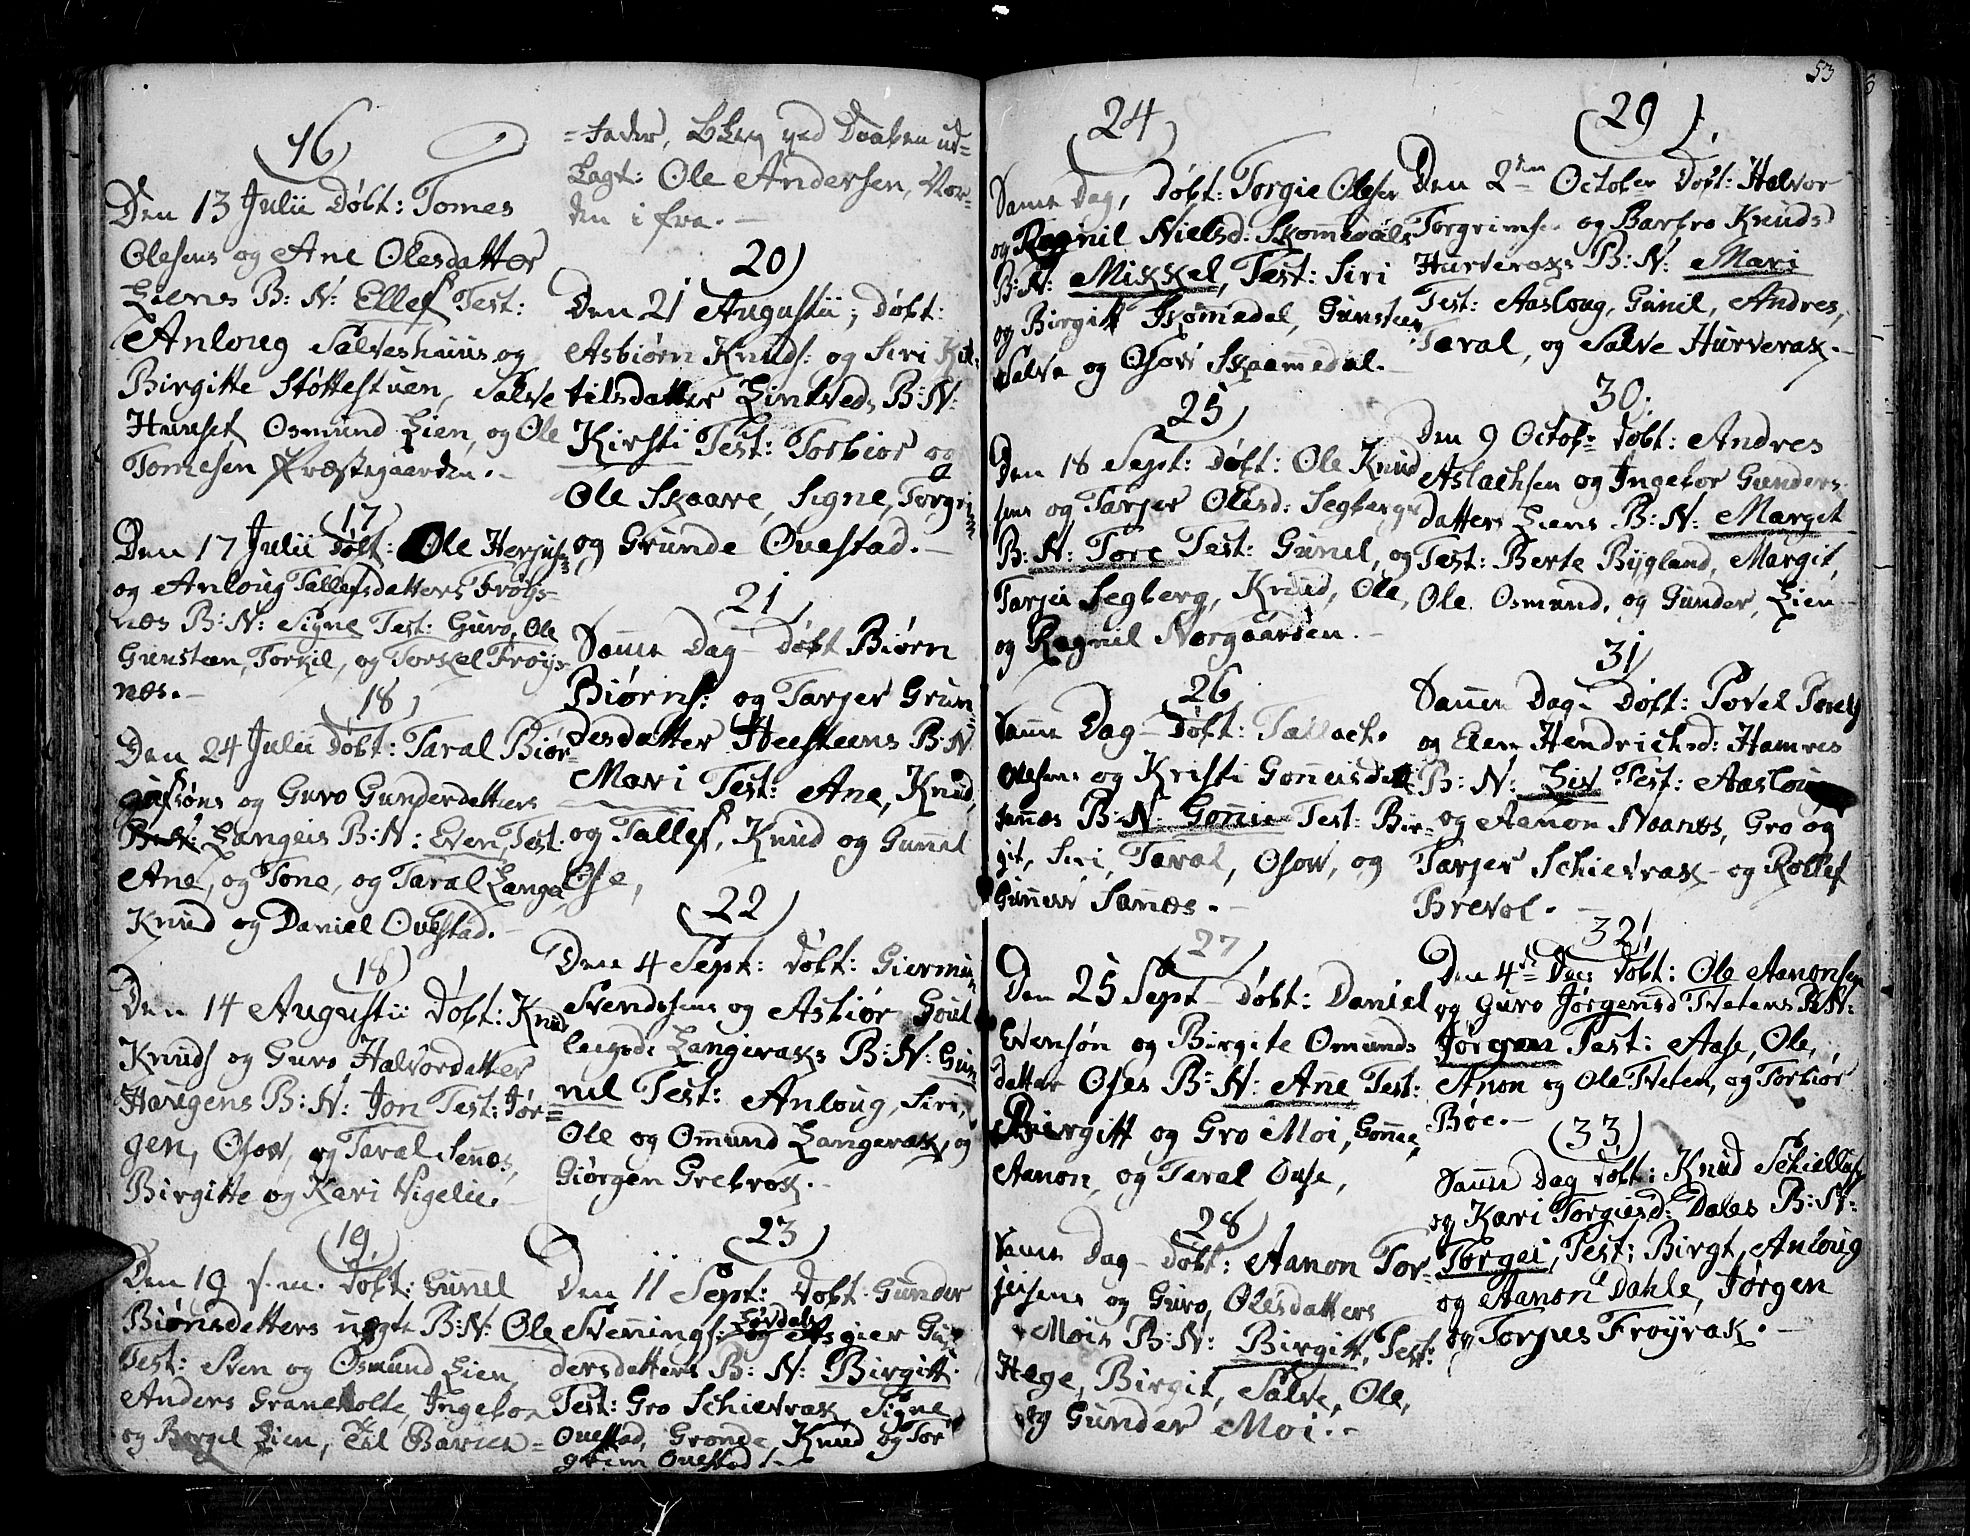 16
Den 13 Julii Døbt: Tomes
Olesens og Ane Olesdatter
Liens B: N: Ellef Test:
Anloug Salveshuus og
Birgitte Støttestuen, Salve
Huuset Osmund Lien, og Ole
Tomesen Præstegaarden.-
17
Den 17 Julii Døbt: Ole Herjufs:
og Anloug Tallefsdatters Frøys-
næs B: N: Signe Test: Guro, Ole
Gunsteen, Torkil, og Torkel Frøys-
næs.-
18
Den 24 Julii Døbt: Taral Biør-
gufsøns og Guro Gunderdatters
Langeis B: N: Even, Test.
Ane, og Tone, og Taral Langei,
Knud og Daniel Ovestad.-
18
Den 14 Augustii Døbt: Knud
Knuds og Guro Halvordatter
Haugens B: N: Jon Test: Jør-
gen, Osow, og Taral Senæs,
Birgitte og Kari Vigelie.-
19
Den 19 s. m. Døbt: Gunnil
Biønsdatters uægte B: N: Ole
Test: Sven og Osmund Lien,
Anders Graneholte, Ingebor
og Lien, Til Barnen-
=Fader, blev ved Daaben ud-
Lagt: Ole Andersen, Nor-
den i fra.-
20
Den 21 Augustii, Døbt:
Asbiørn Knuds: og Siri Kit-
tilsdatter Lintveds B: N:
Kirsti Test: Torbior og
Ole Skaare, Signe, Torgri
og Grunde Ovestad.-
21
Samme Dag- Døbt Biørn
Biørns: og Tarjer Grun-
desdatter Heesteens B: N
Mari Test: Ane, Knud,
og Tallef, Knud og Gunnel
Ose,
22
Den 4 Sept: Døbt: Giermun
Svendsens og Asbiør Goul
leigsd: Langeraks B: N: Gun-
nil Test: Anloug, Siri,
Ole og Omund Langerak, og
Giørgen Grebrok.-
23
Den 11 Sept: Døbt Gunder
Svennings: Løvdals og Asgier Gun
dersdatters B: N: Birgitt.
Test: Gro Schievrak, Signe
Ovestad, Gronde, Knud og Tor
grim Ovestad.-
53
24
Samme Dag, Døbt: Torgie Olesen
og Ragnil Nielsd: Skommedals
B: N: Mikkel, Test: Siri
og Birgitt Skomedal, Gunsteen
Salve og Osow Skaamedal.-
25
Den 18 Sept: Døbt: Ole Knud
sens og Tarjer Olesd: Segbergs
B: N: Tore Test: Gunil, og
Tarjei Segberg, Knud, Ole,
og Ragnil Norgaarden.-
26
Samme Dag- Døbt: Tallach
Olesens og Kristi Gonneisdatt
sannæs B: N: Gonnie Test: Bir-
git, Siri, Taral, Osow, og
Gunner Sannæs.-
27
Den 25 Sept- Døbt: Daniel
Evensøn og Birgite Omunds
datter Oses B: N: Ane Test:
Birgitt og Gro Moi, Gonnee,
Aanon, og Taral Ouse,
28
Samme Dag- Døbt: Aanon Tor-
jeisens og Guro, Olesdatters
Mois B: N: Birgitt, Test:
Hege, Birgit, Salve, Ole,
og Gunder Moi.-
29
Den 2den October Døbt: Halvor
Torgrimse og Barbro Knuds
Hurveraks B: N: Mari
Test: Aasloug, Gunil, Andres,
Taral, og Salve Hurverak.-
30.
Den 9 Octob: Døbt: Andres
Aslachsen og Ingebor Gunders
datters Liens B: N: Margit
Test: Berte Bygland, Margit,
Ole. Osmund, og Gunder, Lien.-
31
Samme Dag- Døbt: Povel Povels
og Elen Hendrichsd: Hamres
B: N: Liv Test: Aasloug
og Aanon Naanæs, Gro og
Tarjer Schievrak og Rollef
Brevol.-
32
Den 4de Dec: Døbt: Ole Aanonsen
og Guro Jørgensd Tvetens B: N:
Jørgen Test: Aase, Ole,
Anon og Ole Tveten, og Torbior
Bøe.-
33
Samme Dag døbt: Knud Schiellufs
og Kari Torgiesd: Dales B: N:
Torgei, Test: Birgt, Anloug
og Aanon Dahle, Jørgen
og Torjus Frøyrak.-